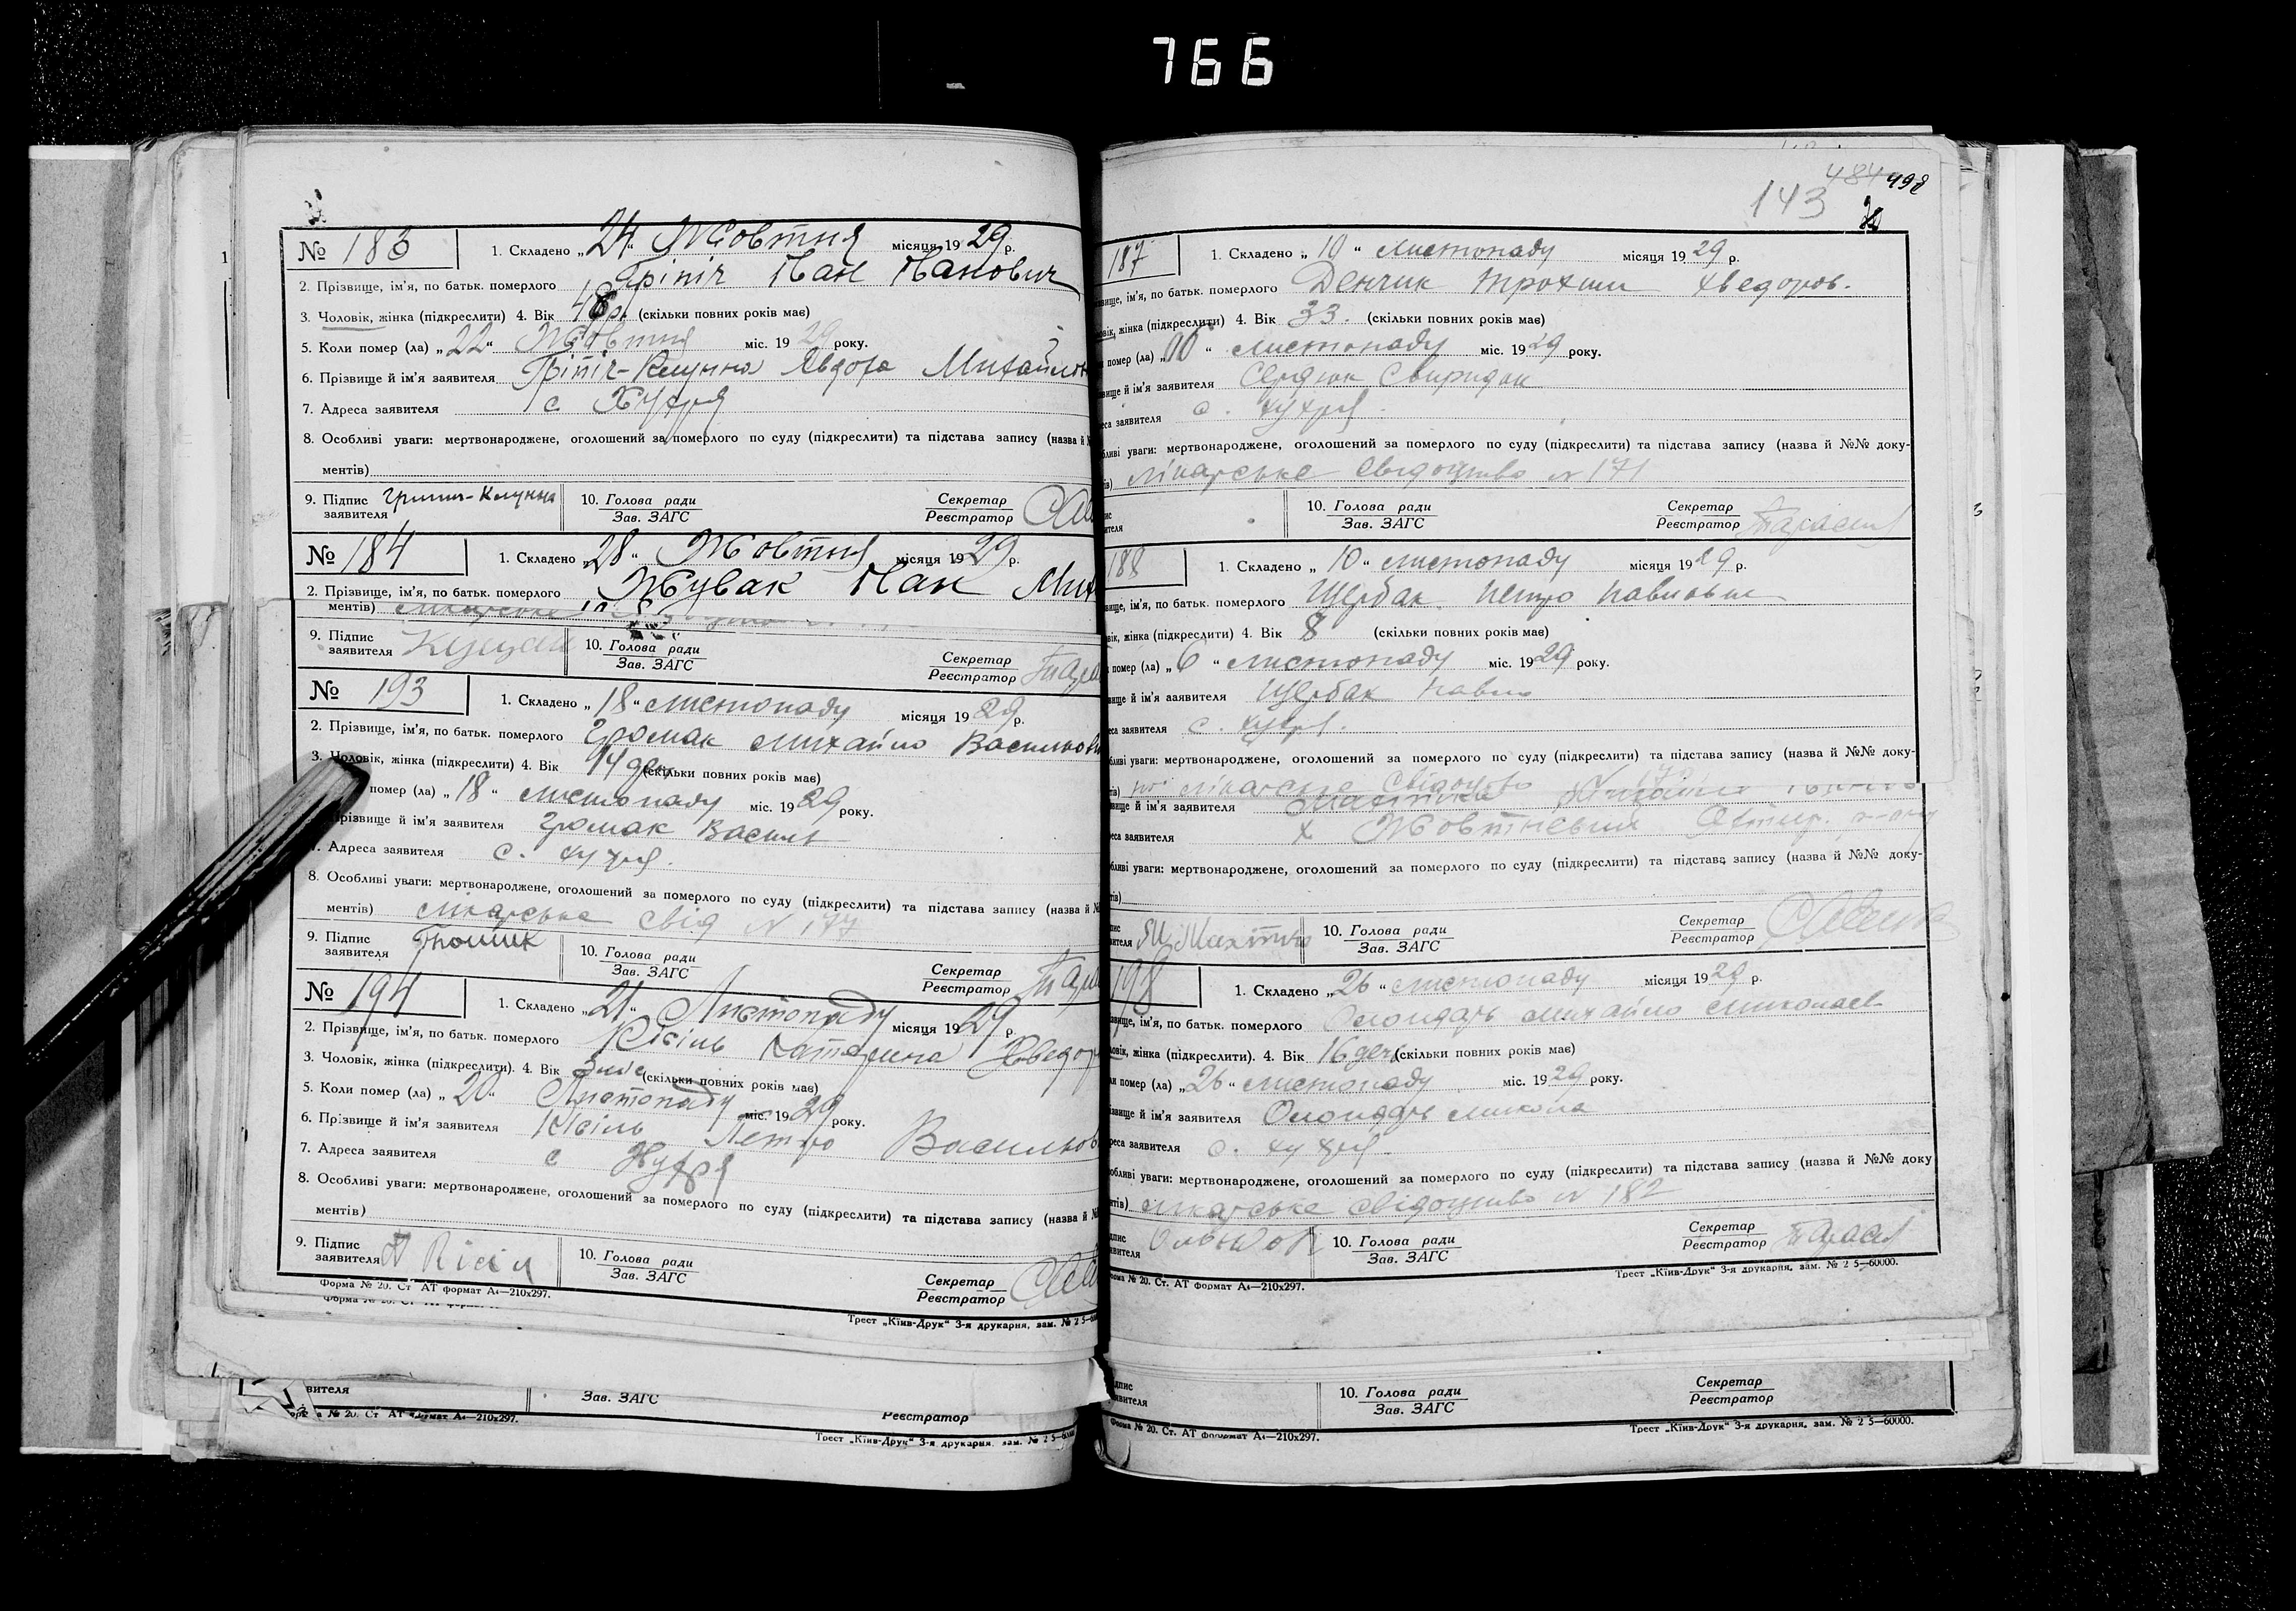 766
№ 183 1. Складено „24“ Жовтня місяця 1929 р.
2. Прізвище, ім'я, по батьк. померлого Гріпіч Іван Іванович
3. Чоловік, жінка (підкреслити) 4. Вік (скільки повних років має)
5. Коли помер (ла) „22“ Жовтня міс. 1929 року.
6. Прізвище й ім'я заявителя Гріпіч- Явдоха Михайлов
7. Адреса заявителя с Хухря
8. Особливі уваги: мертвонароджене, оголошений за померлого по суду (підкреслити) та підстава запису (назва й №
ментів)
9. Підпис заявителя 10. Голова ради Зав. ЗАГС Секретар Реєстратор
№ 184 1. Складено „28“ Жовтня місяця 1929 р.
2. Прізвище, ім'я, по батьк. померлого Жувак Іван Мих
ментів)
9. Підпис заявителя 10. Голова ради Зав. ЗАГС Секретар Реєстратор
№ 193 1. Складено „18“ листопаду місяця 1929 р.
2. Прізвище, ім'я, по батьк. померлого Громак Михайло Васильов
3. Чоловік, жінка (підкреслити) 4. Вік 14 ден (скільки повних років має)
помер (ла) „18“ листопаду міс. 1929 року.
Прізвище й ім'я заявителя Громак Василь
7. Адреса заявителя с. Хухря.
8. Особливі уваги: мертвонароджене, оголошений за померлого по суду (підкреслити) та підстава запису (назва й №
ментів) лікарське свід N 177
9. Підпис заявителя 10. Голова ради Зав. ЗАГС Секретар Реєстратор
№ 194 1. Складено „21“ Листопаду місяця 1929 р.
2. Прізвище, ім'я, по батьк. померлого Кісіль Катерина Хведор
3. Чоловік, жінка (підкреслити). 4. Вік (скільки повних років має)
5. Коли помер (ла) „20“ Листопаду міс. 1929 року.
6. Прізвище й ім'я заявителя Кісіль Петро Васильов
7. Адреса заявителя с Хухря
8. Особливі уваги: мертвонароджене, оголошений за померлого по суду (підкреслити) та підстава запису (назва й №
ментів)
9. Підпис заявителя П Кісіль 10. Голова ради Зав. ЗАГС Секретар Реєстратор
Форма № 20. Ст. АТ формат А4—210х297.
Трест „Київ-Друк“ 3-я друкарня, зам. № 2 5—60
вителя Зав. ЗАГС Реєстратор
№ 20. Ст АТ формат А4—210х297.
Трест „Київ-Друк“ 3-я друкарня, зам. № 2 5—60
484 498
143
187 1. Складено „10“ листопаду місяця 1929 р.
вище, ім'я, по батьк. померлого Денчик Трохим Хведоров.
вік, жінка (підкреслити) 4. Вік 33. (скільки повних років має)
помер (ла) „10“ листопаду міс. 1929 року.
вище й ім'я заявителя Сердюк Свиридон
са заявителя с. Хухря.
бливі уваги: мертвонароджене, оголошений за померлого по суду (підкреслити) та підстава запису (назва й №№ доку-
ів) лікарське свідоцтво N 171
10. Голова ради Зав. ЗАГС Секретар Реєстратор
188 1. Складено „10“ листопаду місяця 1929 р.
вище, ім'я, по батьк. померлого Щербак Петро Павлович
вік, жінка (підкреслити) 4. Вік 8 (скільки повних років має)
помер (ла) „6“ листопаду міс. 1929 року.
вище й ім'я заявителя Щербак Павло
са заявителя с. Хухря.
бливі уваги: мертвонароджене, оголошений за померлого по суду (підкреслити) та підстава запису (назва й №№ доку-
ів) лікарське свідоцтво
вище й ім'я заявителя
са заявителя х Жовтневий Охтир. р-ну
бливі уваги: мертвонароджене, оголошений за померлого по суду (підкреслити) та підстава запису (назва й №№ доку-
тів)
10. Голова ради Зав. ЗАГС Секретар Реєстратор
198 1. Складено „26“ листопаду місяця 1929 р.
звище, ім'я, по батьк. померлого Михайло Миколаев
овік, жінка (підкреслити). 4. Вік 16 день (скільки повних років має)
ли помер (ла) „26“ листопаду міс. 1929 року.
ізвище й ім'я заявителя Микола
реса заявителя с. Хухря.
обливі уваги: мертвонароджене, оголошений за померлого по суду (підкреслити) та підстава запису (назва й №№ доку
нтів) лікарське свідоцтво N 182
10. Голова ради Зав. ЗАГС Секретар Реєстратор
№ 20. Ст. АТ формат А4—210х297.
Трест „Київ-Друк“ 3-я друкарня, зам. № 2 5—60000.
10. Голова ради Зав. ЗАГС Секретар Реєстратор
Форма № 20. Ст. АТ формат А4—210х297.
Трест „Київ-Друк“ 3-я друкарня, зам. № 2 5—60000.